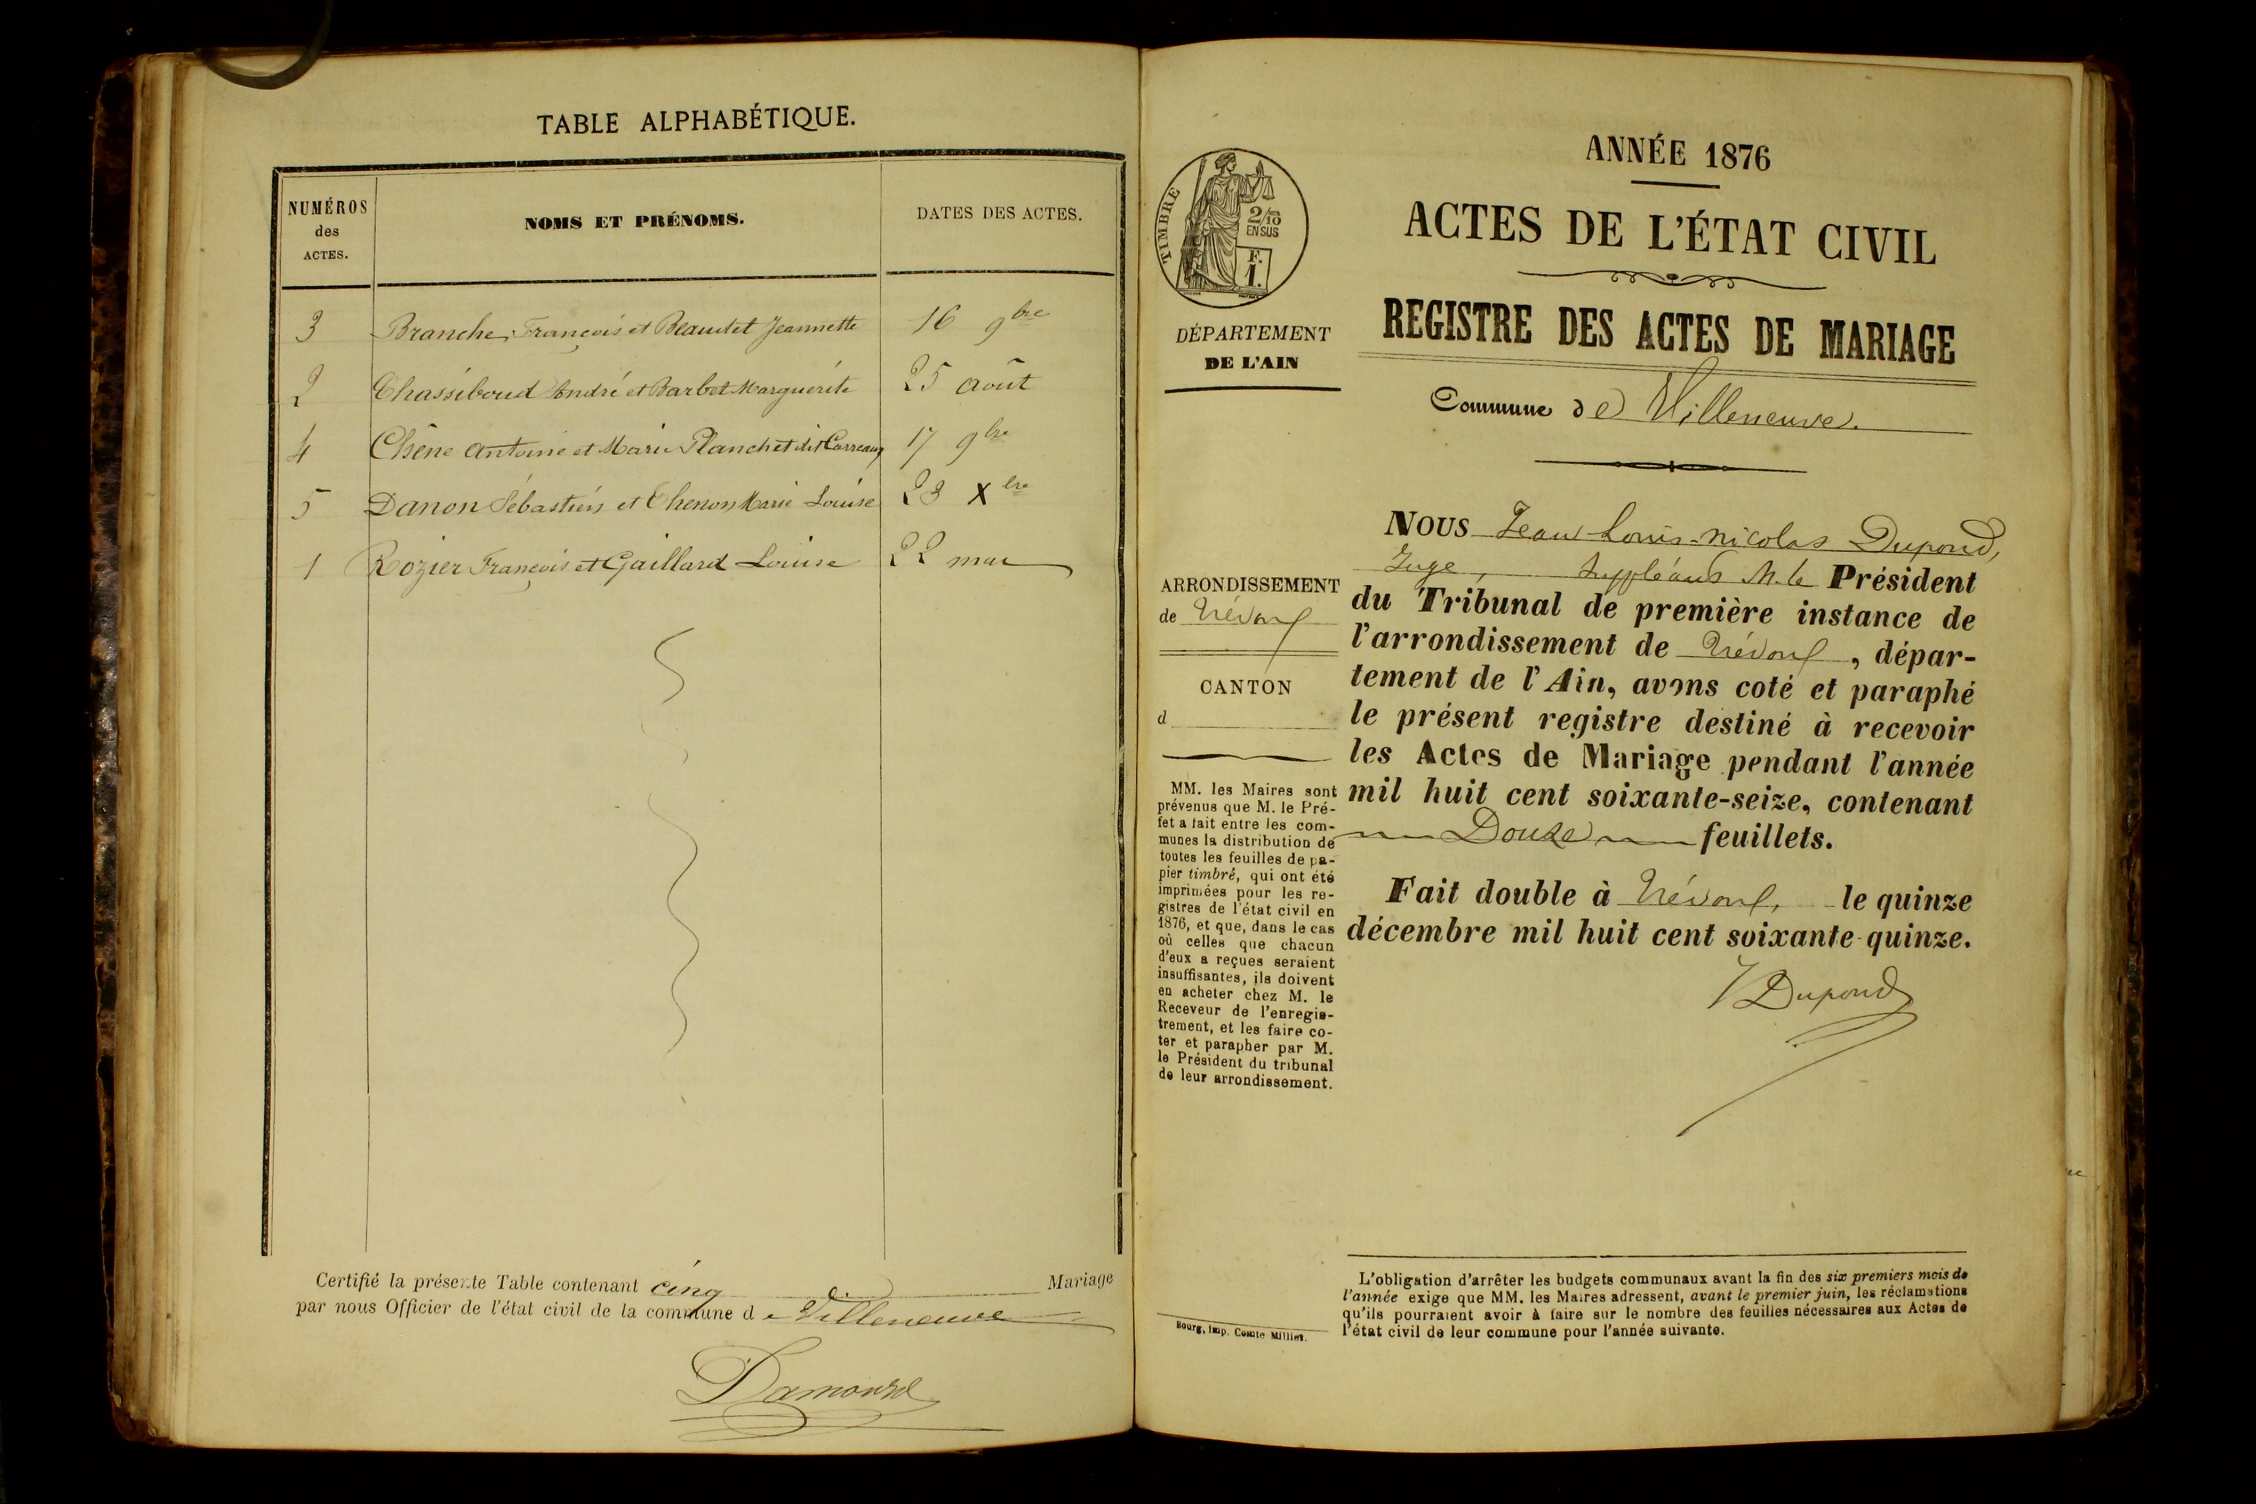 TABLE ALPHABÉTIQUE.
NUMÉROS
des
ACTES.
NOMS ET PRÉNOMS.
DATES DES ACTES.
3 Branche François et Beaudet Jeannette 16 9bre
2 Chasséboud André et Barbet Marguerite 25 août
4 Chêne Antoine et Marie Planchet dit Carreaux 17 9bre
5 Danon Sébastien et Chenon Marie Louise 23 Xbre
1 Rozier François et Gaillard Louise 22 mai
Certifié la présente Table contenant cinq Mariage
par nous Officier de l'état civil de la commune de Villeneuve
Damourd
ANNÉE 1876
ACTES DE L'ÉTAT CIVIL
REGISTRE DES ACTES DE MARIAGE
Commune de Villeneuve.
TIMBRE
2/10
EN SUS
F.
1.
DÉPARTEMENT
DE L'AIN
ARRONDISSEMENT
de Trévoux
CANTON
d
MM. les Maires sont
prévenus que M. le Pré-
fet a fait entre les com-
munes la distribution de
toutes les feuilles de pa-
pier timbré, qui ont été
imprimées pour les re-
gistres de l'état civil en
1876, et que, dans le cas
où celles que chacun
d'eux a reçues seraient
insuffisantes, ils doivent
en acheter chez M. le
Receveur de l'enregis-
trement, et les faire co-
ter et parapher par M.
le Président du tribunal
de leur arrondissement.
Bourg, imp. Comte Milliet.
NOUS Jean Louis Nicolas Dupond,
Juge, suppléant M. le Président
du Tribunal de première instance de
l'arrondissement de Trévoux, dépar-
tement de l'Ain, avons coté et paraphé
le présent registre destiné à recevoir
les Actes de Mariage pendant l'année
mil huit cent soixante-seize, contenant
Douze feuillets.
Fait double à Trévoux, le quinze
décembre mil huit cent soixante-quinze.
Dupond
L'obligation d'arrêter les budgets communaux avant la fin des six premiers mois de
l'année exige que MM. les Maires adressent, avant le premier juin, les réclamations
qu'ils pourraient avoir à faire sur le nombre des feuilles nécessaires aux Actes de
l'état civil de leur commune pour l'année suivante.